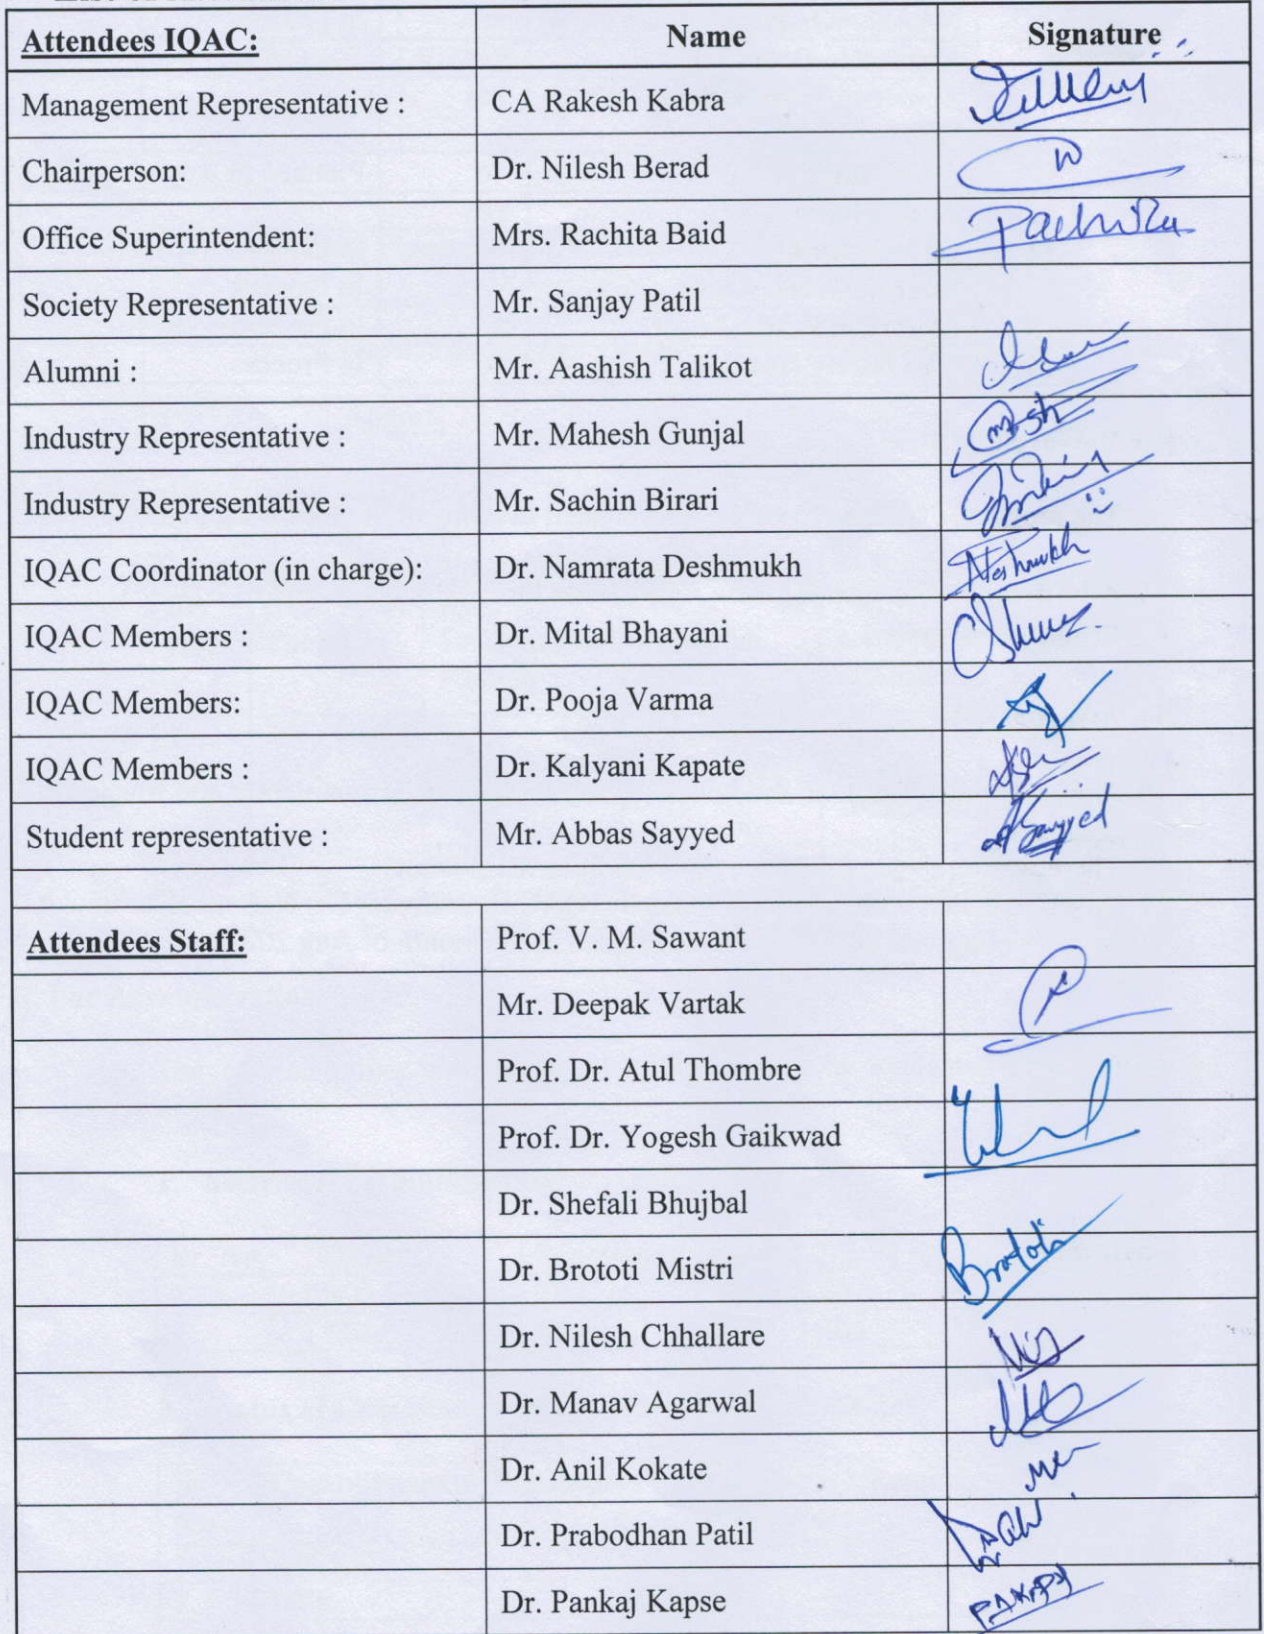 Attendees IQAC: Name Signature
Management Representative : CA Rakesh Kabra
Chairperson: Dr. Nilesh Berad
Office Superintendent: Mrs. Rachita Baid
Society Representative : Mr. Sanjay Patil
Alumni : Mr. Aashish Talikot
Industry Representative : Mr. Mahesh Gunjal
Industry Representative : Mr. Sachin Birari
IQAC Coordinator (in charge): Dr. Namrata Deshmukh
IQAC Members : Dr. Mital Bhayani
IQAC Members: Dr. Pooja Varma
IQAC Members : Dr. Kalyani Kapate
Student representative : Mr. Abbas Sayyed Sayyed
Attendees Staff: Prof. V. M. Sawant
Mr. Deepak Vartak
Prof. Dr. Atul Thombre
Prof. Dr. Yogesh Gaikwad
Dr. Shefali Bhujbal
Dr. Brototi Mistri Brototi
Dr. Nilesh Chhallare
Dr. Manav Agarwal
Dr. Anil Kokate
Dr. Prabodhan Patil
Dr. Pankaj Kapse